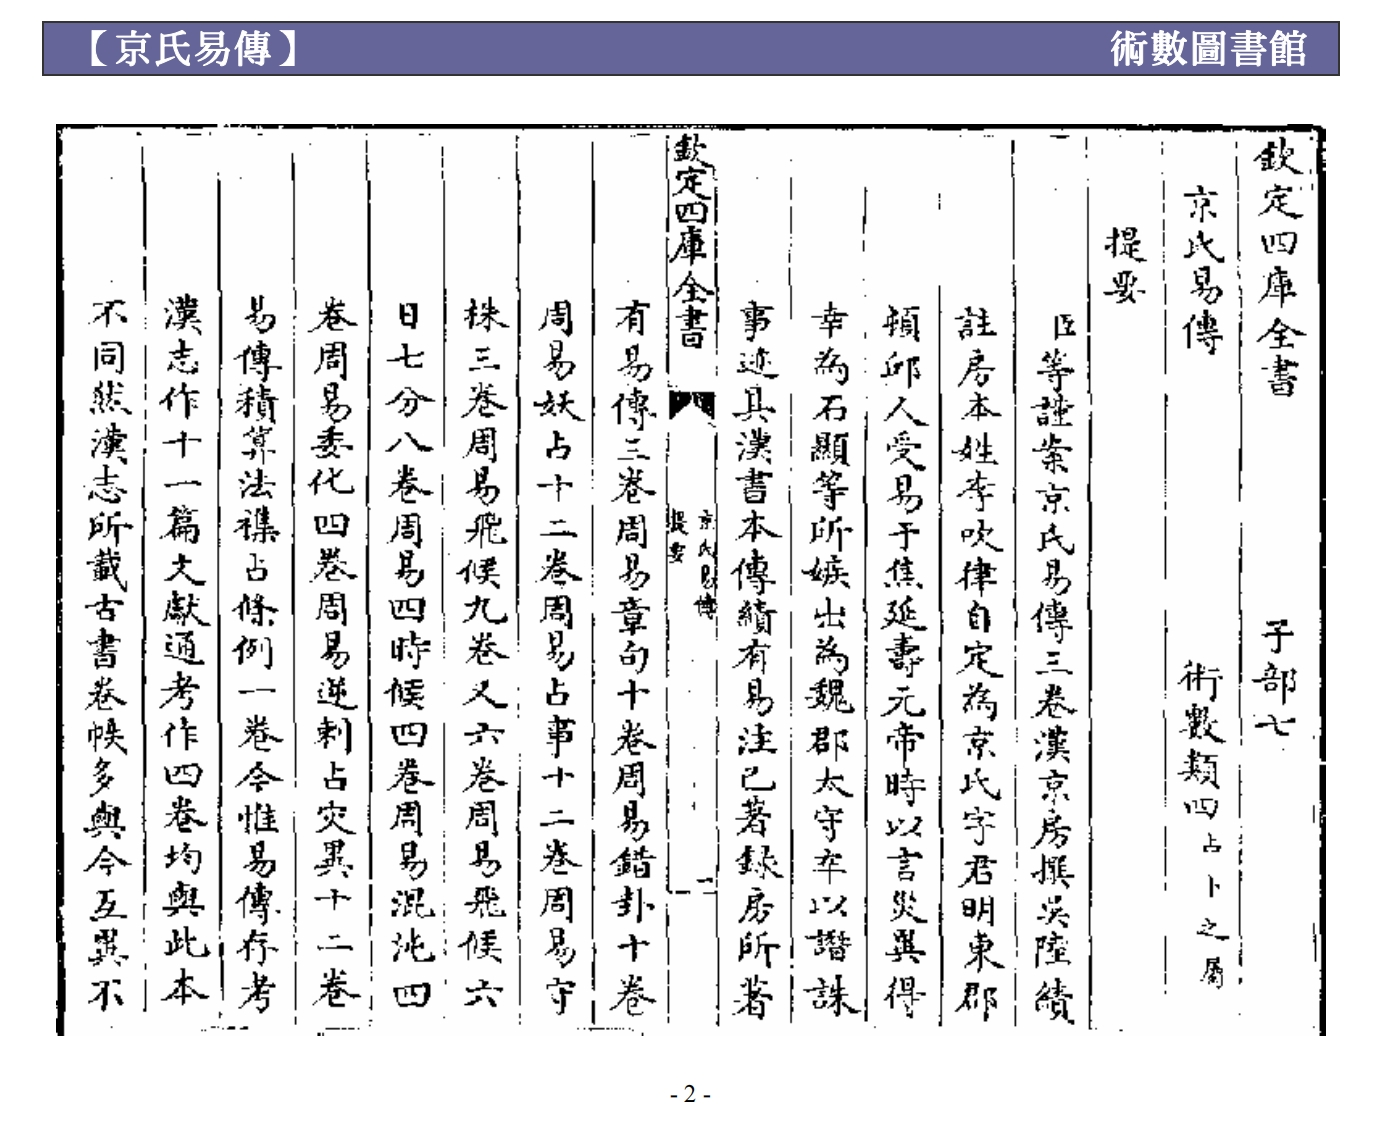 【京氏易傳】 術數圖書館
欽定四庫全書 子部七
京氏易傳 術數類四占卜之屬
提要
臣等謹案京氏易傳三卷漢京房撰吳陸績
註房本姓李吹律自定為京氏字君明東郡
頓邱人受易于焦延壽元帝時以言災異得
幸為石顯等所嫉出為魏郡太守卒以譖誅
事迹具漢書本傳績有易注已著録房所著
欽定四庫全書
京氏易傳
提要
一
有易傳三卷周易章句十卷周易錯卦十卷
周易妖占十二卷周易占事十二卷周易守
株三卷周易飛候九卷又六卷周易飛候六
日七分八卷周易四時候四卷周易混沌四
卷周易委化四卷周易逆刺占灾異十二卷
易傳積算法襍占條例一卷今惟易傳存考
漢志作十一篇文獻通考作四卷均與此本
不同然漢志所載古書卷帙多與今互異不
- 2 -